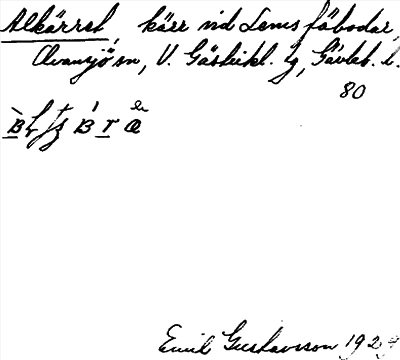 Alkärret, kärr vid Lenis fäbodar,
Ovansjö sn, V. Gästrikl. tg, Gävleb. l.
80
Emil Gustavsson 192